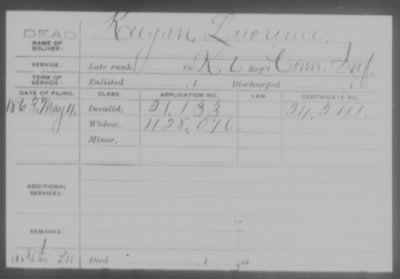 DEAD
NAME OF SOLDIER: Keegan, Lawrence.
SERVICE: Late rank, Co. K 6 Reg't Conn. Inf.
TERM OF SERVICE: Enlisted , 1 Discharged , 1
DATE OF FILING. CLASS. APPLICATION NO. LAW. CERTIFICATE NO.
1863, May 4. Invalid, 21,133 24,341.
Widow, 428,076.
Minor,
ADDITIONAL SERVICES:
REMARKS:
Died , 1